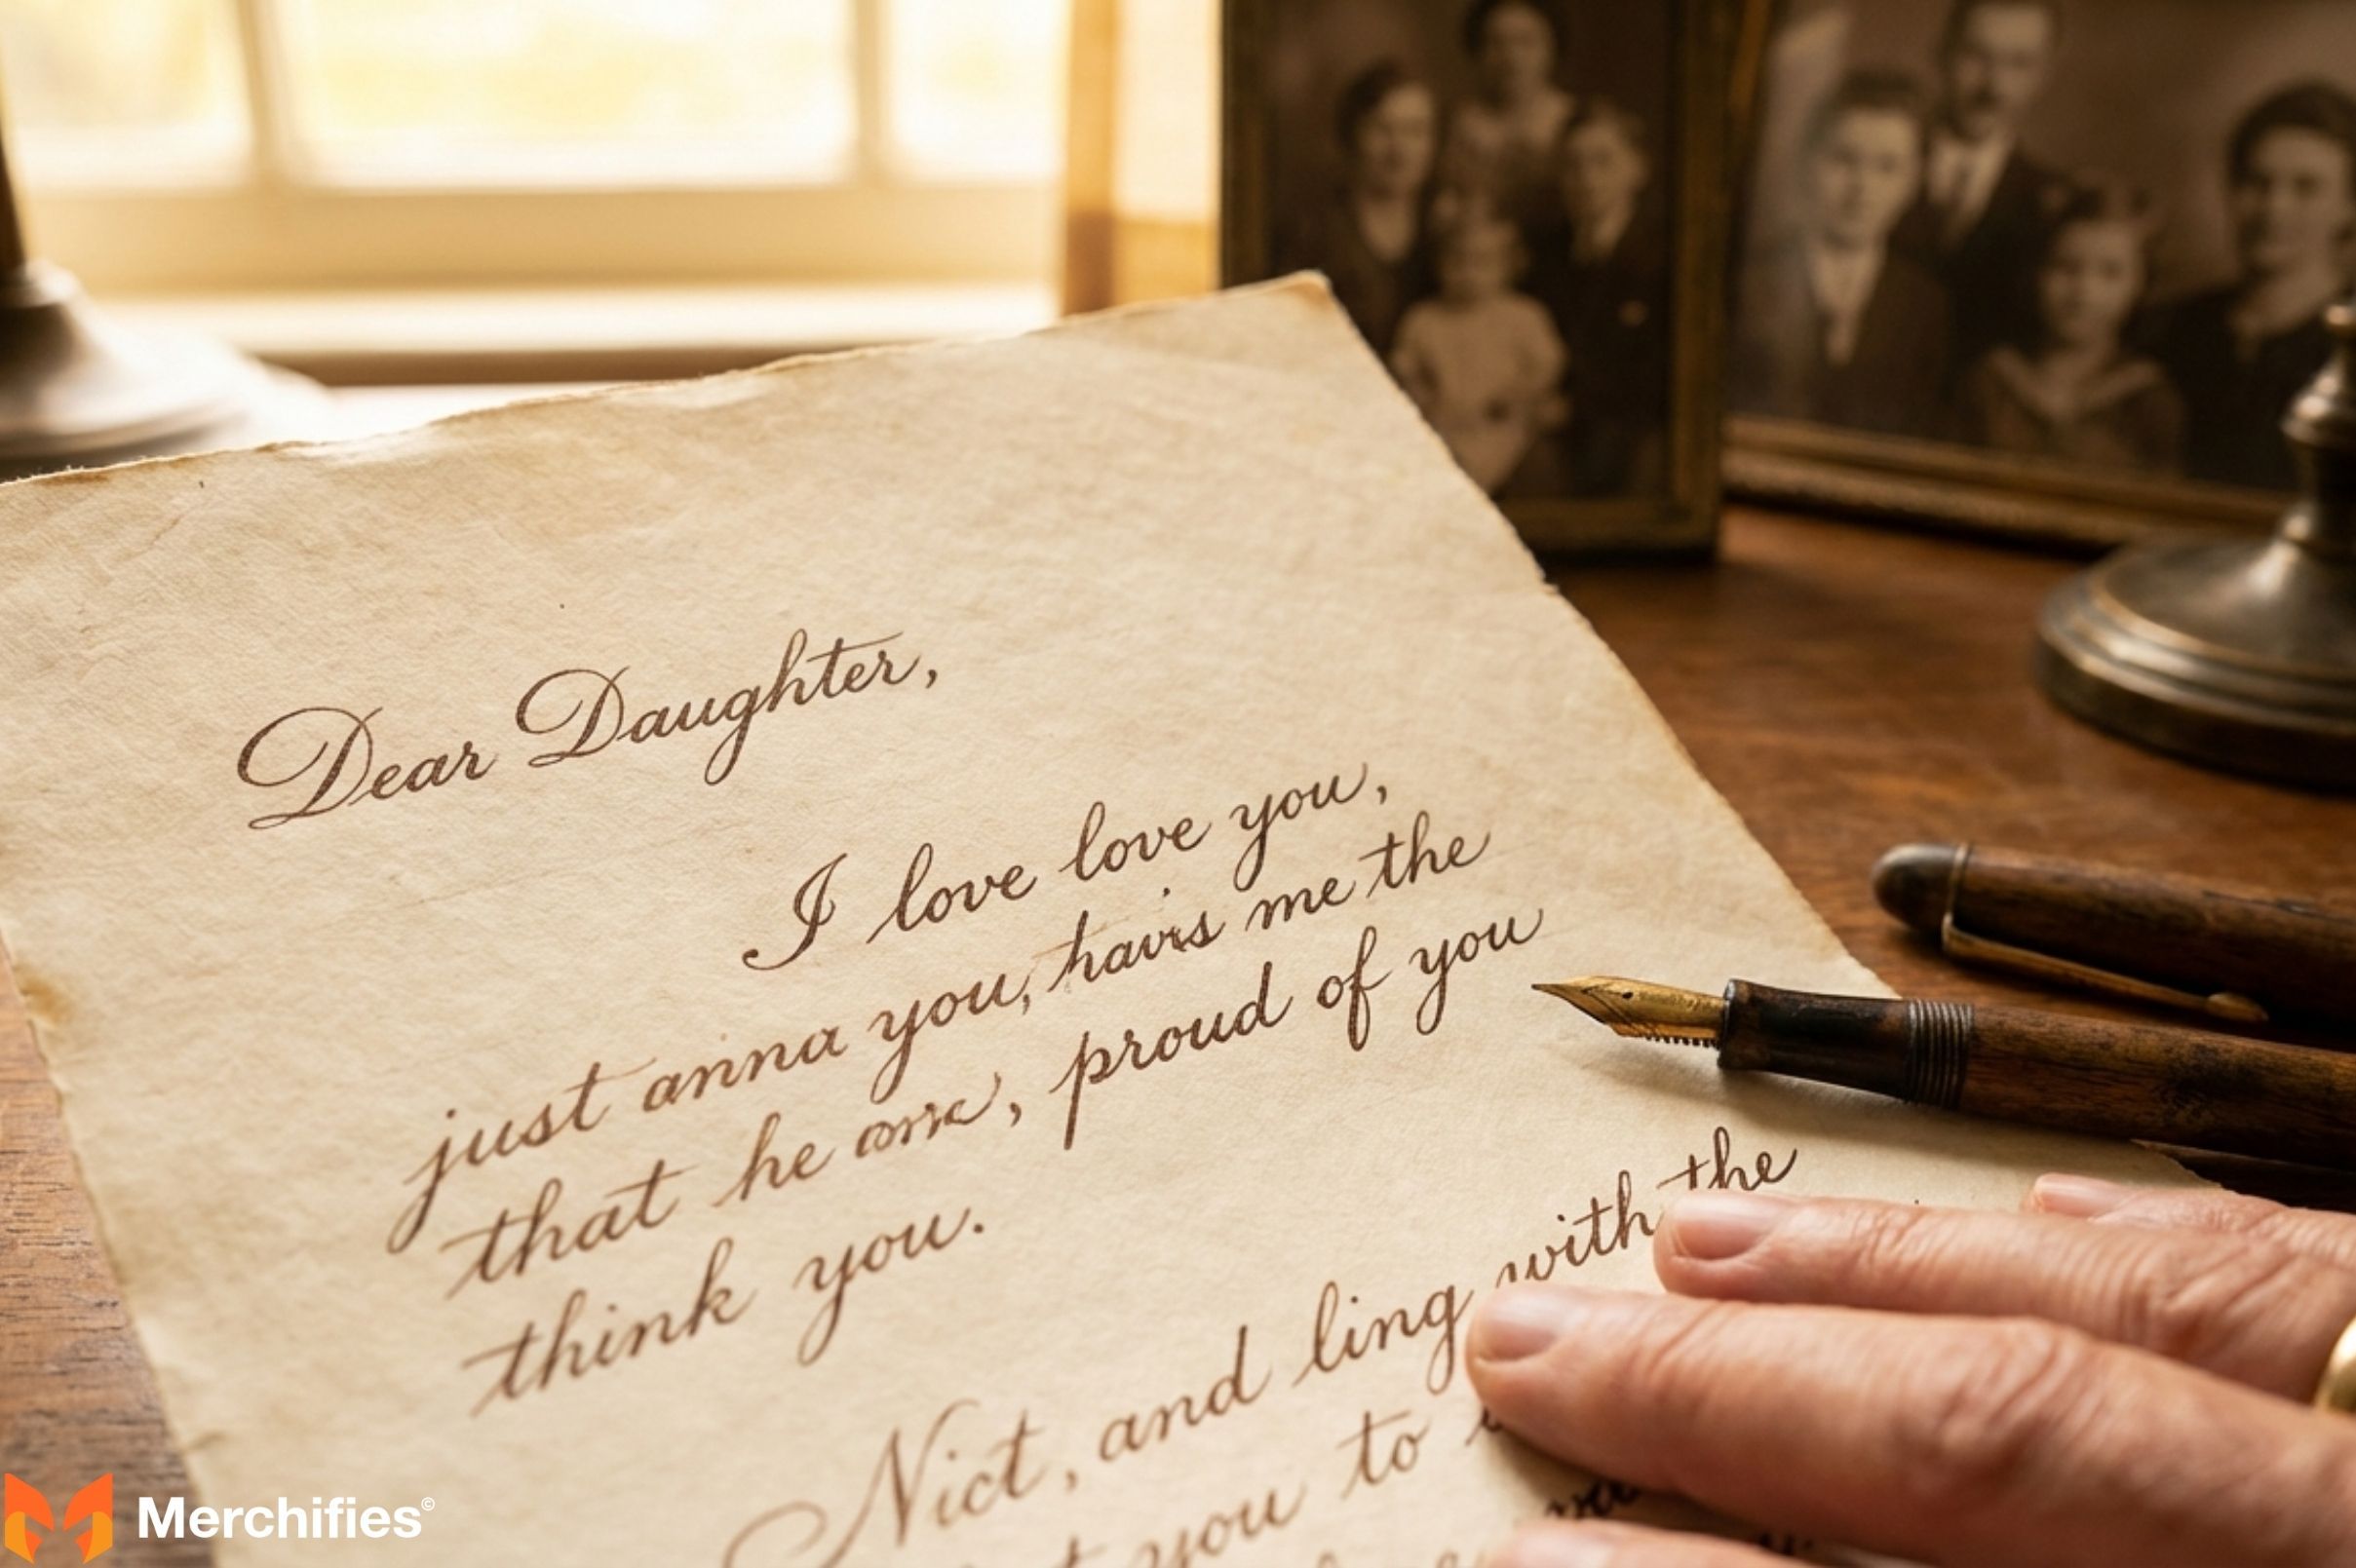 Dear Daughter,
I love love you,
just anna you, havrs me the
that he, proud of you
think you.
Nict, and ling with the
you to
Merchifies©